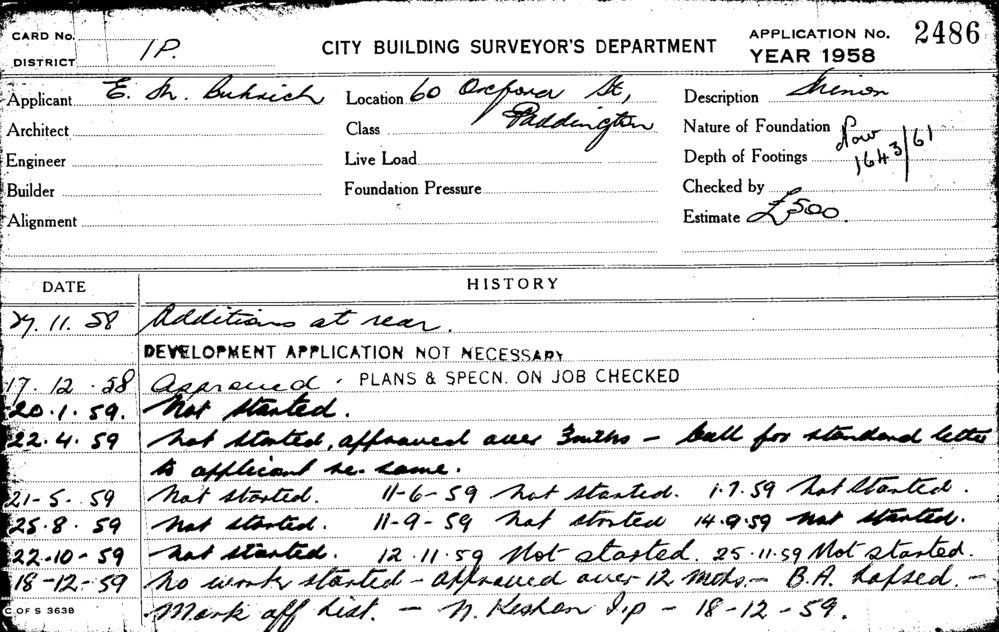 CARD No.
DISTRICT 1P.
CITY BUILDING SURVEYOR'S DEPARTMENT
APPLICATION No. 2486
YEAR 1958
Applicant E. M. Location 60 Oxford St, Description Minor
Architect Class Paddington Nature of Foundation Now
Engineer Live Load Depth of Footings 1643/61
Builder Foundation Pressure Checked by
Alignment Estimate £500.
DATE HISTORY
27. 11. 58 Additions at rear.
DEVELOPMENT APPLICATION NOT NECESSARY
17. 12. 58 Approved. PLANS & SPECN. ON JOB CHECKED
20.1.59. Not started.
22.4.59 Not started, approved over 3mths - Call for standard letter
to applicant re-same.
21-5-59 Not started. 11-6-59 Not started. 1.7.59 Not started.
25.8.59 Not started. 11-9-59 Not started 14.9.59 Not started.
22-10-59 Not started. 12.11.59 Not started. 25.11.59 Not started.
18-12-59 No work started - approved over 12 mths. - B.A. Lapsed. -
Mark off List. - N. I.P - 18-12-59.
C OF S 363B